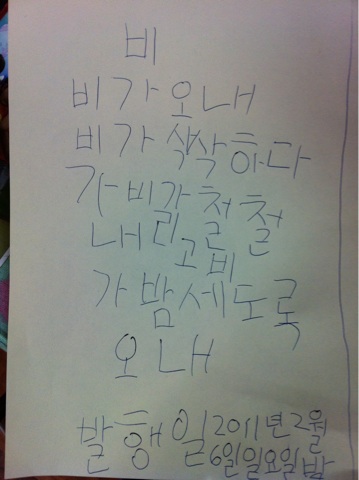 비
비가오내
비가싹싹하다
가비가철철
내리고비
가밤세도록
오내
발행일2011년2월
6일일요일밤